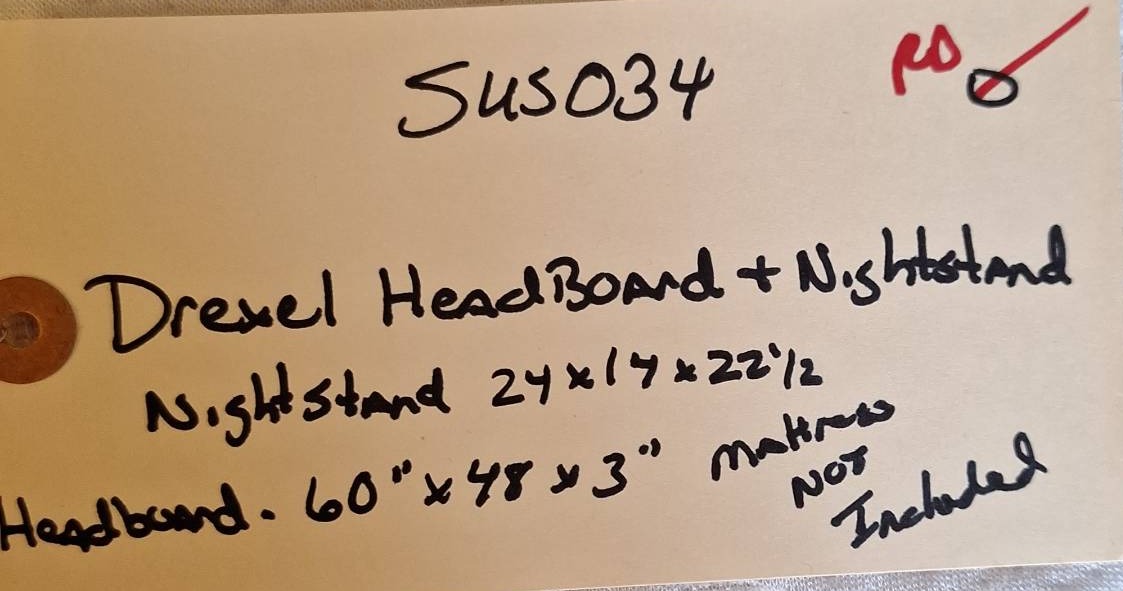 SUS034
RD
Drexel HeadBoard + Nightstand
Nightstand 24x14x22 1/2
Headboard. 60" x 48 x 3" Mattress
NOT
Included